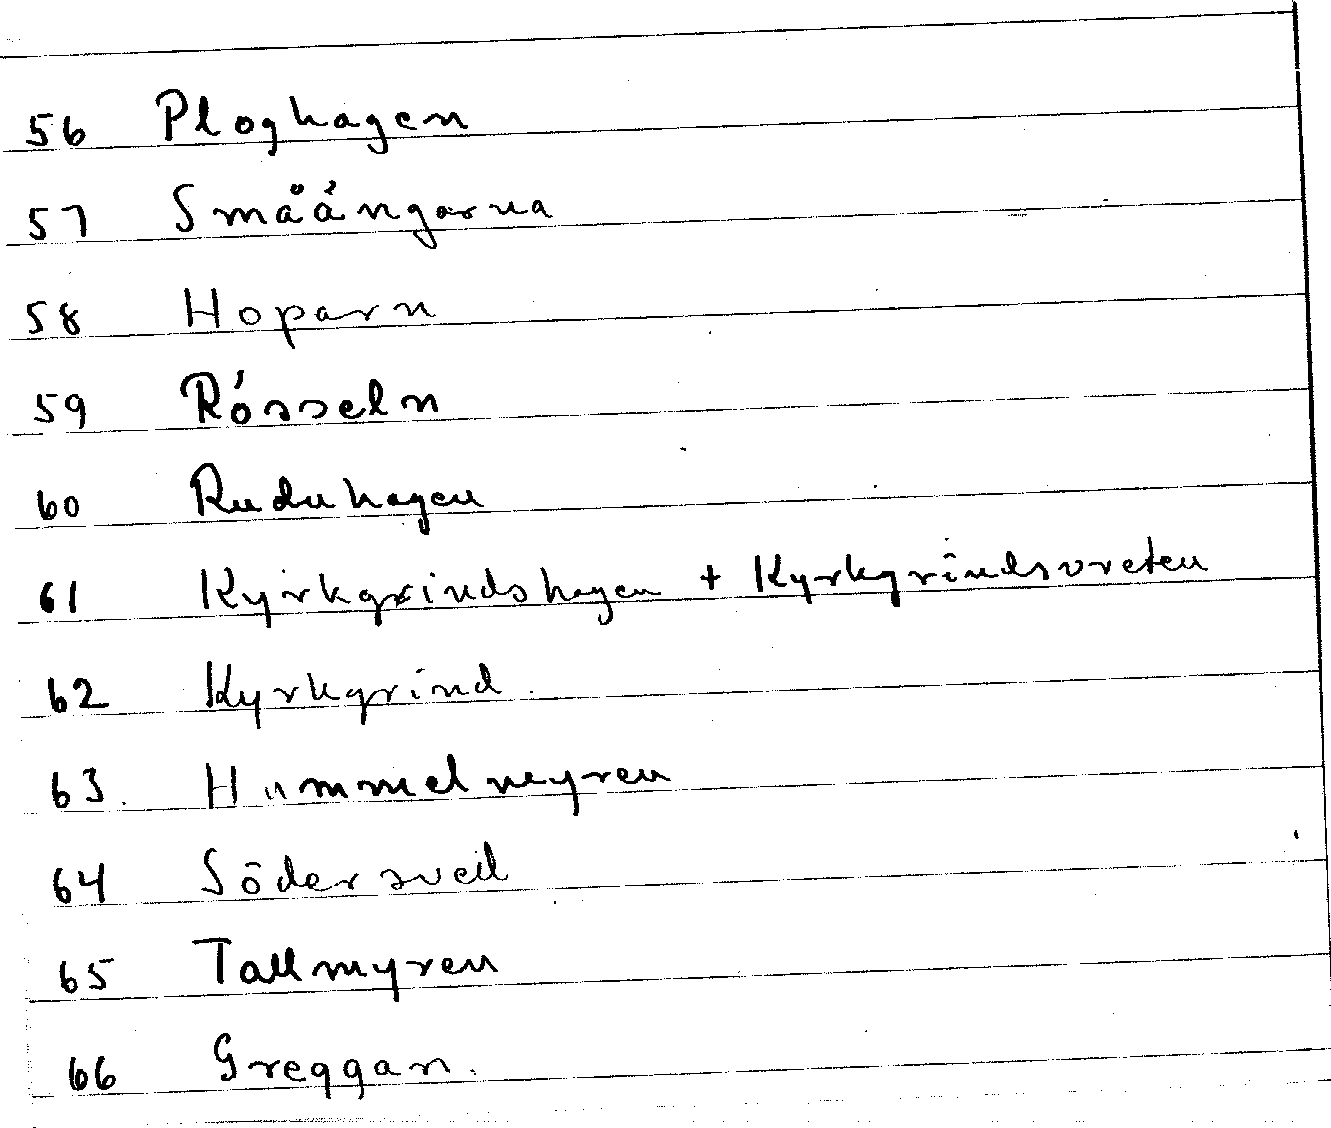 56 Ploghagen
57 Småängarna
58 Hoparn
59 Rösseln
60 Ruduhagen
61 Kyrkgrindshagen + Kyrkgrindsvreten
62 Kyrkgrind
63. Hummelmyren
64 Södersved
65 Tallmyren
66 Greggan.